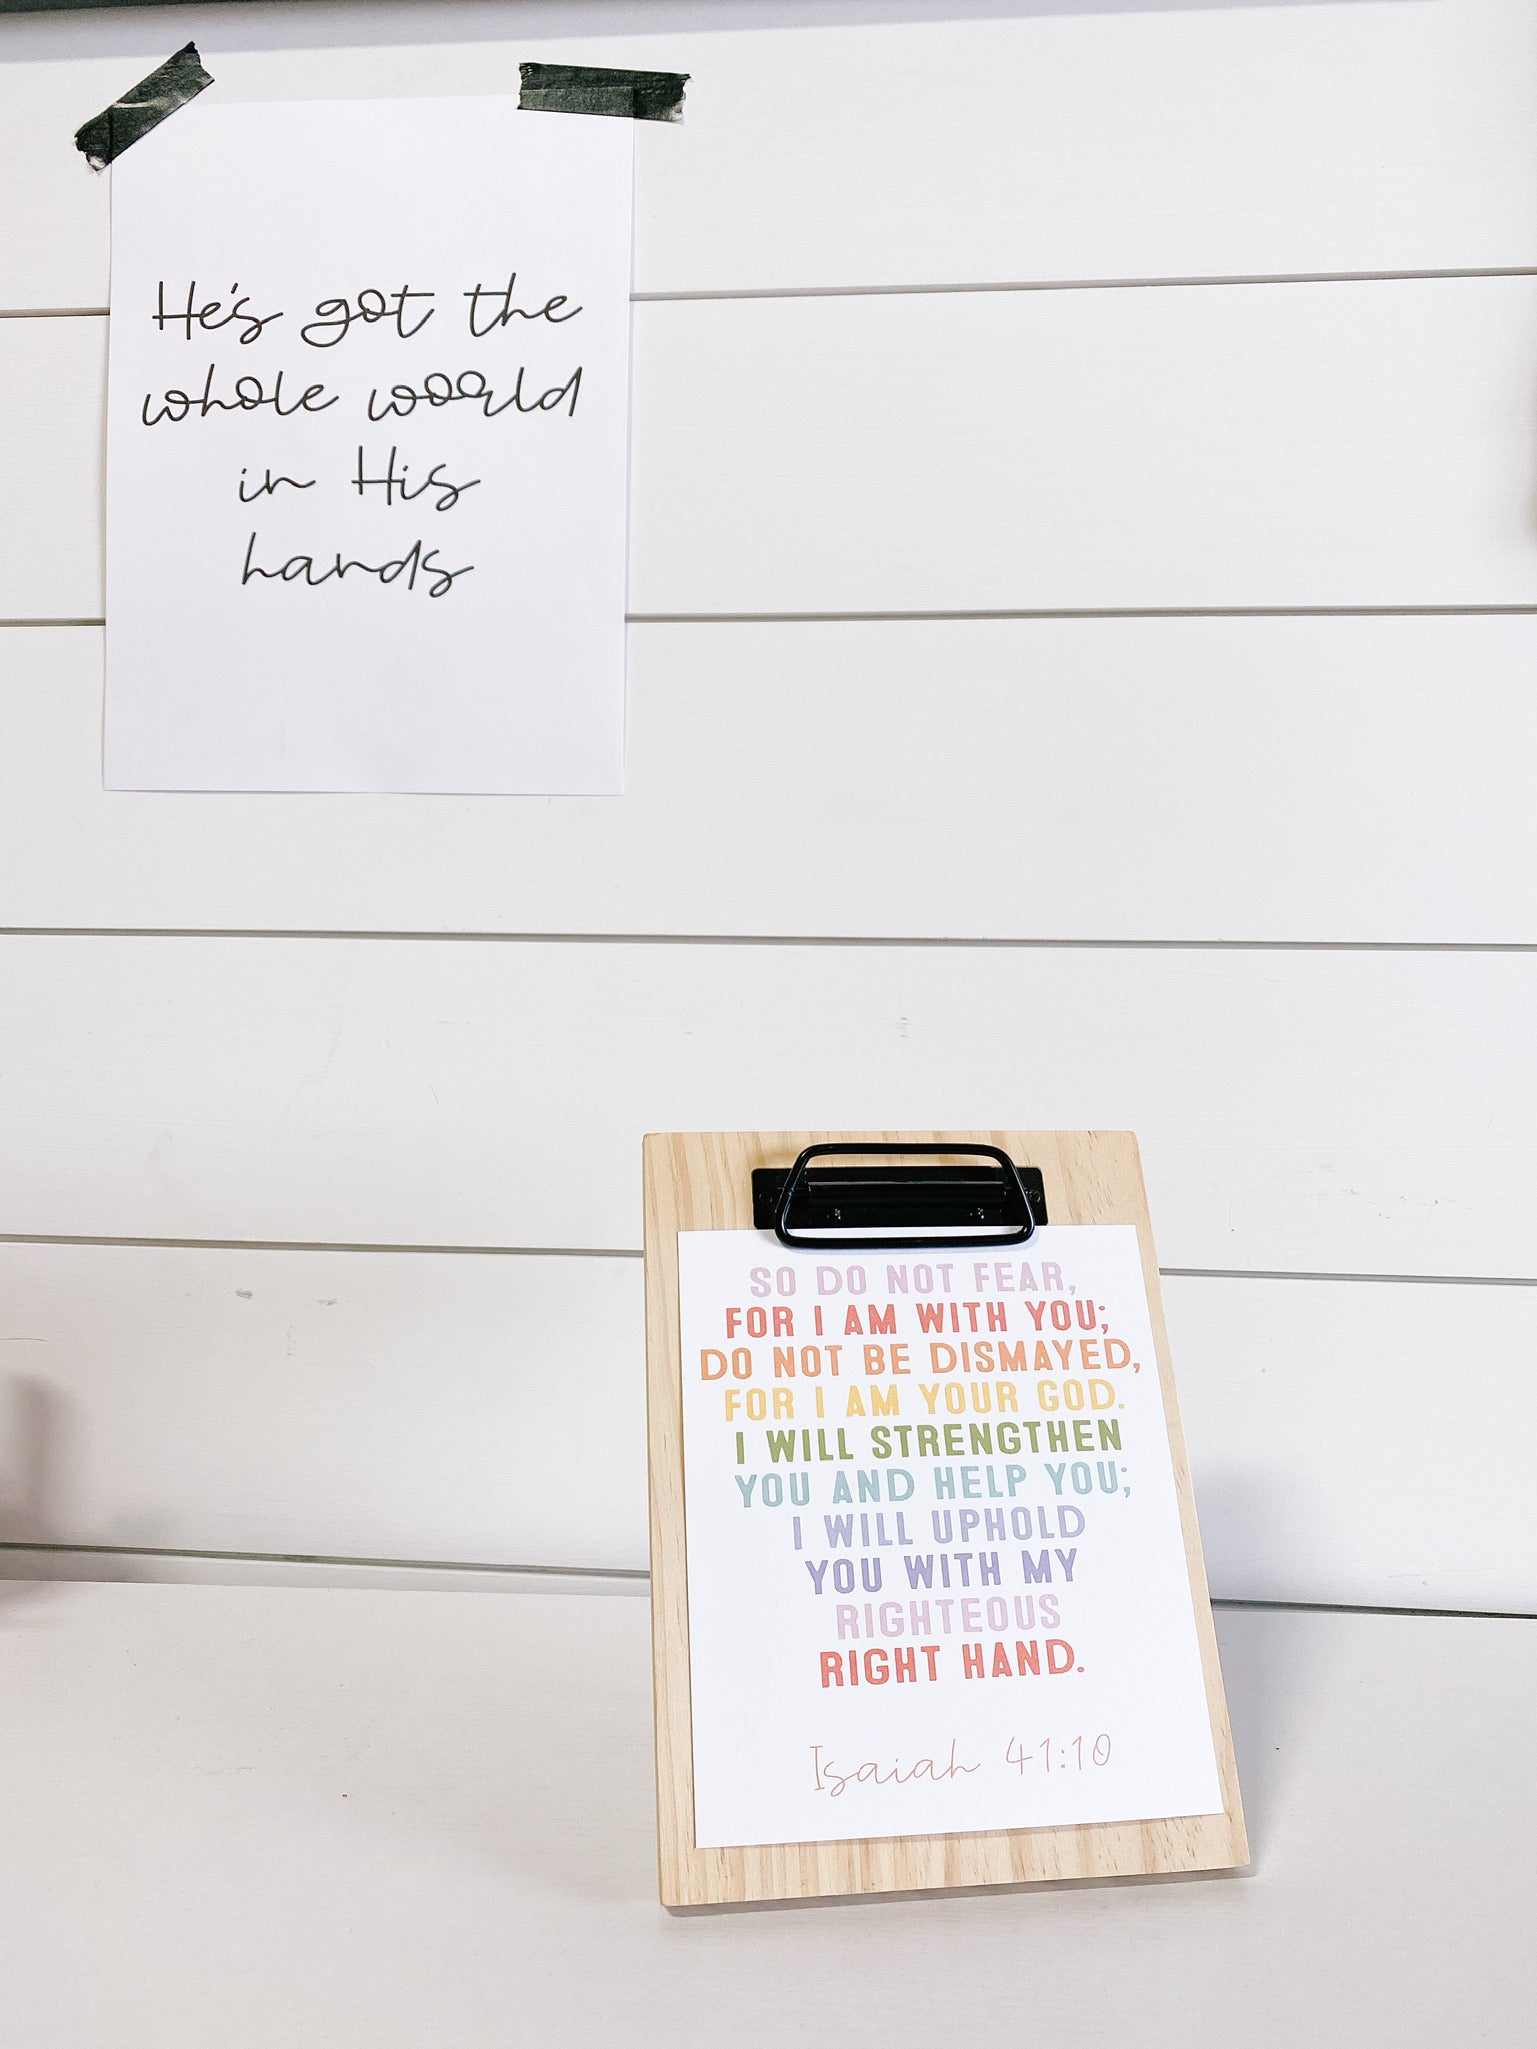 He's got the
whole world
in His
hands
SO DO NOT FEAR,
FOR I AM WITH YOU;
DO NOT BE DISMAYED,
FOR I AM YOUR GOD.
I WILL STRENGTHEN
YOU AND HELP YOU;
I WILL UPHOLD
YOU WITH MY
RIGHTEOUS
RIGHT HAND.
Isaiah 41:10